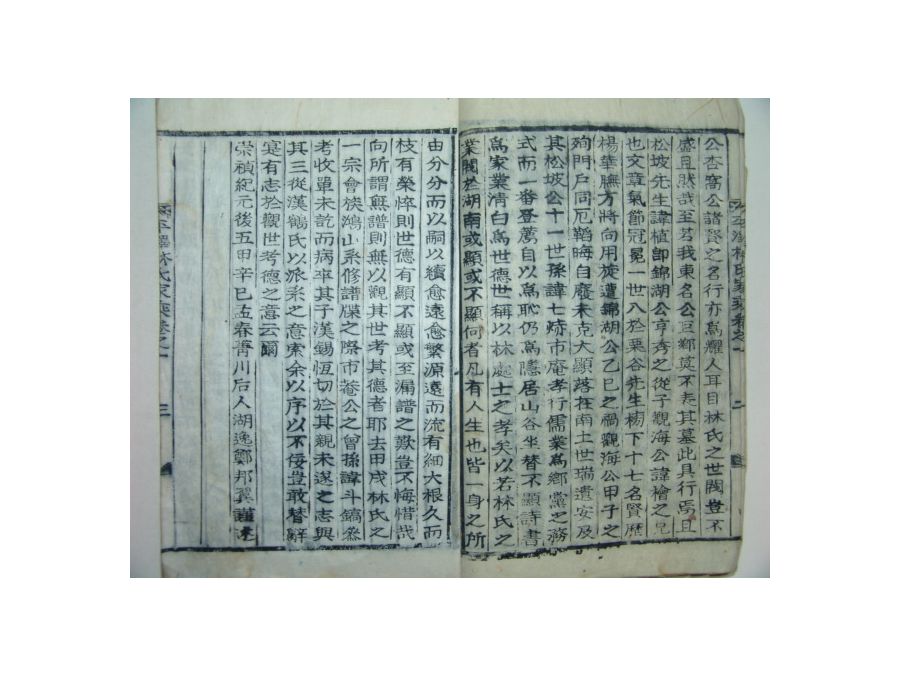 公杏窩公諸賢之名行亦爲耀人耳目林氏之世閥豈不
盛且然哉至若我東名公巨鄕莫不表其墓此具行焉且
松坡先生諱植卽錦湖公亨秀之從子觀海公諱檜之兄
也文章氣節冠冕一世入於栗谷先生榻下十七名賢歷
楊華膴方將向用旋遭錦湖公乙巳之禍觀海公甲子之
殉門戶同厄韜晦自廢未克大顯落在南土世瑞遣安及
其松坡公十一世孫諱七 市庵孝行儒業爲鄕黨之務
式而一番登薦自以爲恥仍爲隱居山谷坐替不顯詩書
爲家業淸白爲世德世稱以林處士之孝矣以若林氏之
業閥於湖南或顯或不顯何者凡有人生也皆一身之所
由分分而以嗣以續愈遠愈繁源遠而流有細大根久而
枝有榮悴則世德有顯不顯或至漏譜之歎豈不悔惜哉
向所謂無譜則無以觀其世考其德者耶去甲戌林氏之
一宗會族鴻山系修譜牒之際市菴公之曾孫諱斗鎬叅
考收單未訖而病卒其子漢錫恆切於其親未遂之志與
其三從漢鶴氏以派系之意索余以序以不佞豈敢替辭
寔有志於觀世考德之意云爾
崇禎紀元後五甲辛巳孟春菁川后人湖逸鄭邦翼謹達